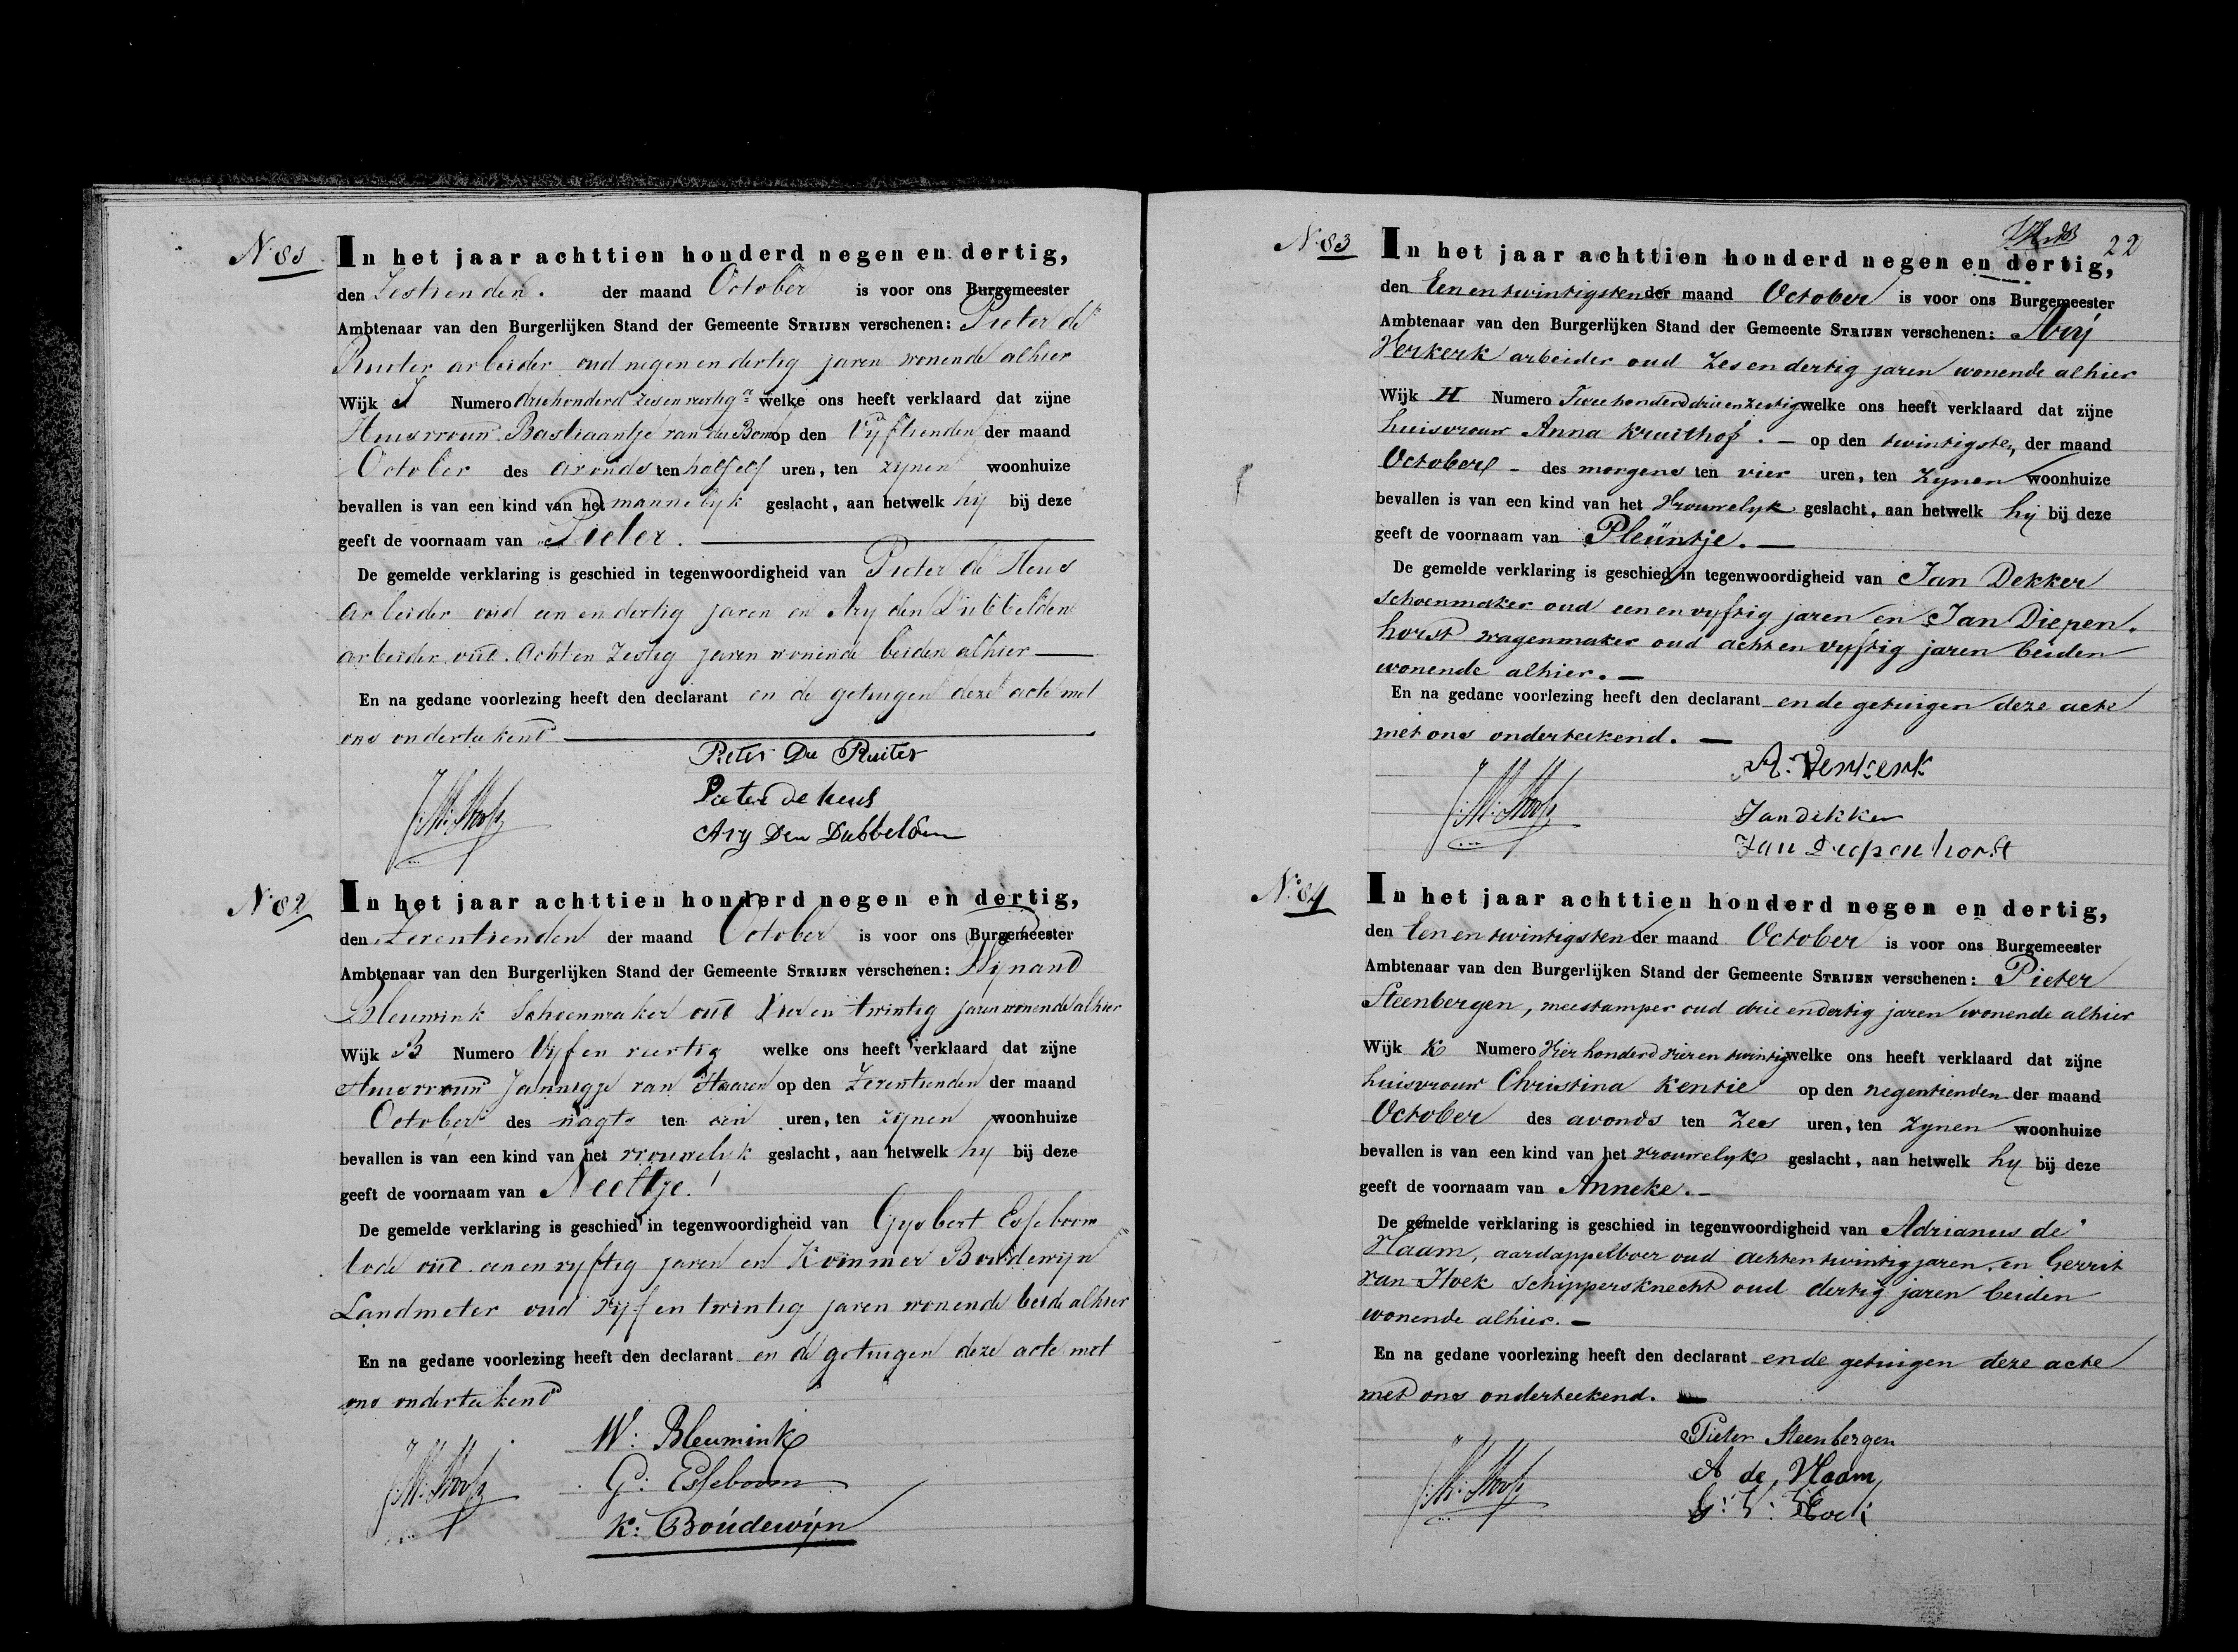 N. 81
In het jaar achttien honderd negen en dertig,
den Zestienden. der maand October is voor ons Burgemeester
Ambtenaar van den Burgerlijken Stand der Gemeente STRIJEN verschenen: Pieter de
Ruiter arbeider oud negen en dertig jaren wonende alhier
Wijk I Numero driehonderd zes en veertig a welke ons heeft verklaard dat zijne
Huisvrouw Bastiaantje van den Bom op den Vyftienden der maand
October des avonds ten half elf uren, ten zynen woonhuize
bevallen is van een kind van het mannelyk geslacht, aan hetwelk hij bij deze
geeft de voornaam van Pieter.
De gemelde verklaring is geschied in tegenwoordigheid van Pieter de Heus
arbeider oud een en dertig jaren en Ary den Dubbelden
arbeider oud Acht en Zestig jaren wonende beiden alhier
En na gedane voorlezing heeft den declarant en de getuigen deze acte met
ons onderteekend
Pieter De Ruiter
Pieter de heus
Ary Den Dubbelden
N. 82
In het jaar achttien honderd negen en dertig,
den Zeventienden der maand October is voor ons Burgemeester
Ambtenaar van den Burgerlijken Stand der Gemeente STRIJEN verschenen: Wynand
Bleumink Schoenmaker oud Vier en twintig jaren wonende alhier
Wijk B Numero Vyf en veertig welke ons heeft verklaard dat zijne
Huisvrouw Jannigje van Haaren op den Zeventienden der maand
October des nagts ten een uren, ten zynen woonhuize
bevallen is van een kind van het vrouwelyk geslacht, aan hetwelk hy bij deze
geeft de voornaam van Neeltje.
De gemelde verklaring is geschied in tegenwoordigheid van Gysbert Esseboom
bode oud een en vyftig jaren en Kommer Boudewyn
Landmeter oud vyf en twintig jaren wonende beide alhier
En na gedane voorlezing heeft den declarant en de getuigen deze acte met
ons onderteekend
W: Bleumink
G: Esseboom
K: Boudewijn
22
N. 83
In het jaar achttien honderd negen en dertig,
den Een en twintigsten der maand October is voor ons Burgemeester
Ambtenaar van den Burgerlijken Stand der Gemeente STRIJEN verschenen: Arij
Verkerk arbeider oud Zes en dertig jaren wonende alhier
Wijk H Numero Twee honderd drie en zestig welke ons heeft verklaard dat zijne
huisvrouw Anna Kruithof. – op den twintigsten der maand
October – des morgens ten vier uren, ten Zynen woonhuize
bevallen is van een kind van het Vrouwelyk geslacht, aan hetwelk hij bij deze
geeft de voornaam van Pleuntje. –
De gemelde verklaring is geschied in tegenwoordigheid van Jan Dekker
schoenmaker oud een en vyftig jaren en Jan Diepen.
horst wagenmaker oud acht en vyftig jaren beiden
wonende alhier. –
En na gedane voorlezing heeft den declarant en de getuigen deze acte
met ons onderteekend. –
A. Verkerk
Jan dekker
Jan Diepenhorst
N. 84
In het jaar achttien honderd negen en dertig,
den Een en twintigsten der maand October is voor ons Burgemeester
Ambtenaar van den Burgerlijken Stand der Gemeente STRIJEN verschenen: Pieter
Steenbergen, meestamper oud drie en dertig jaren wonende alhier
Wijk K Numero Vier honderd vier en twintig welke ons heeft verklaard dat zijne
huisvrouw Christina Kentie op den negentienden der maand
October des avonds ten Zes uren, ten Zynen woonhuize
bevallen is van een kind van het vrouwelyk geslacht, aan hetwelk hy bij deze
geeft de voornaam van Anneke. –
De gemelde verklaring is geschied in tegenwoordigheid van Adrianus de
Vlaam, aardappelboer oud acht en twintig jaren en Gerrit
van Hoek schippersknecht oud dertig jaren beiden
wonende alhier. –
En na gedane voorlezing heeft den declarant en de getuigen deze acte
met ons onderteekend. –
Pieter Steenbergen
A de Vlaam
G: V: Hoek